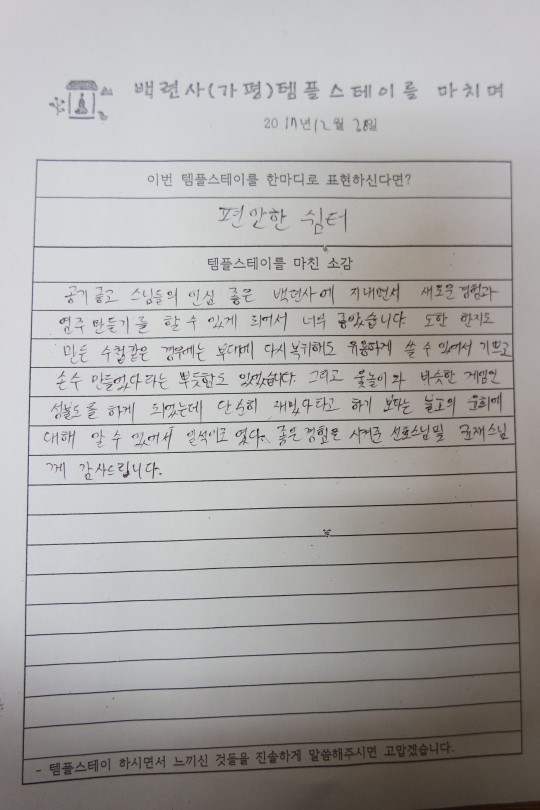 백련사(가평)템플스테이를 마치며
2017년 12월 28일
이번 템플스테이를 한마디로 표현하신다면?
편안한 쉼터
템플스테이를 마친 소감
공기 좋고 스님들의 인심 좋은 백련사에 지내면서 새로운 경험과
염주 만들기를 할 수 있게 되어서 너무 좋았습니다. 또한 한지로
만든 수첩같은 경우에는 부대에 다시 복귀해도 유용하게 쓸 수 있어서 기쁘고
손수 만들었다라는 뿌듯함도 있었습니다. 그리고 윷놀이와 비슷한 게임인
성불도를 하게 되었는데 단순히 재밌다라고 하기 보다는 불교의 윤회에
대해 알 수 있어서 일석이조였다. 좋은 경험을 시켜준 선호스님 및 스님
께 감사드립니다.
- 템플스테이 하시면서 느끼신 것들을 진솔하게 말씀해주시면 고맙겠습니다.